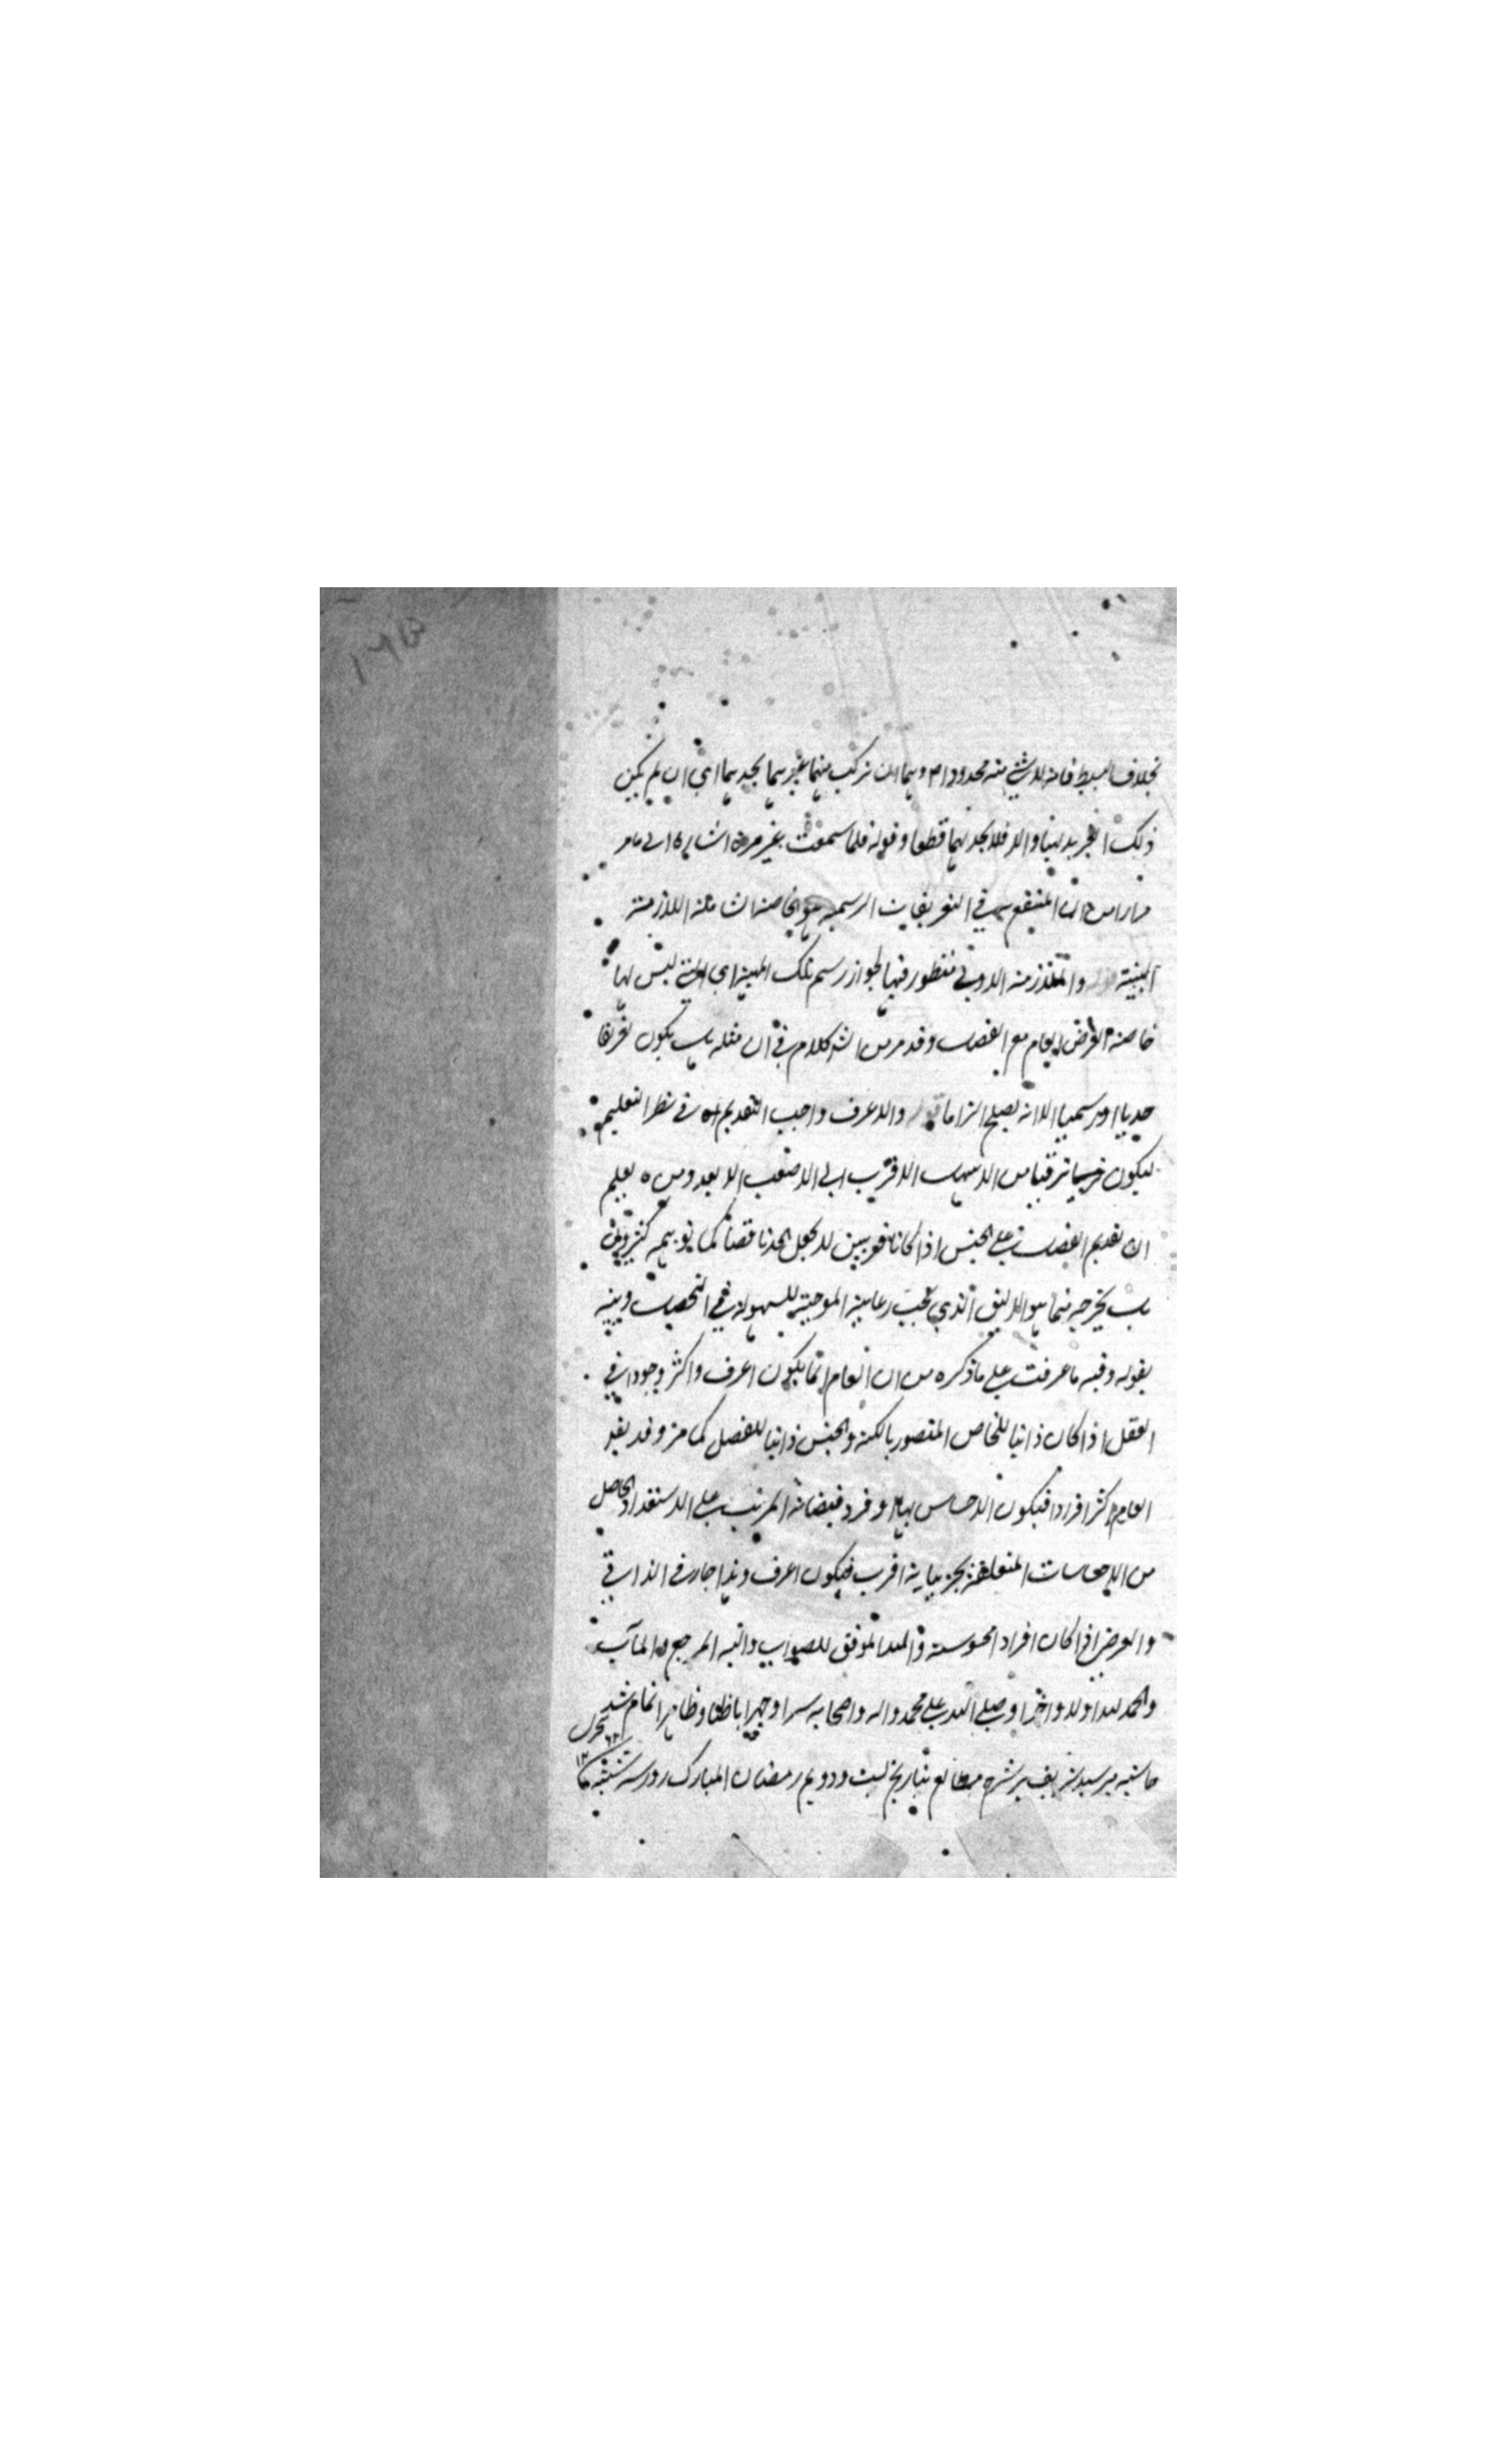 بخلاف البسيط فانه لا شيء منه محدود ام وهما ان تركب منهما غيرهما يحد بهما اي ان لم يكن
ذلك الغير بديهيا والا فلا يحد بهما قطعا وقوله فلما سمعت غير مرة اشارة الى ما مر
مرارا من ان المنتفع به في التعريفات الرسمية هو الخاصة الشاملة اللازمة
البينة واللازمة الاولى منظور فيها لجواز رسم تلك المهية اي التي ليس لها
خاصة بالعرض العام مع الفصل وقد مر من الشر كلام في ان مثله هل يكون تعريفا
حديا او رسميا الا انه يصلح الزاما والاعرف واجب التقديم اه في نظر التعليم
ليكون ترقيا من الاسهل الاقرب الى الاصعب الابعد ومن ه يعلم
ان تقديم الفصل على الجنس اذا كانا قريبين لا يجعل الحد ناقصا كما توهمه كثيرون
بل يخرجه عما هو الاليق الذي يجب رعايته الموجبة للسهولة في التحصيل وينبه
بقوله وفيه ما عرفت على ما ذكره من ان العام انما يكون اعرف واكثر وجودا في
العقل اذا كان ذاتيا للخاص المتصور بالكنه والجنس ذاتيا للفصل كما مر وقد يقر
العام اكثر افرادا فيكون الاحساس بها اوفر وفيضانه المرتب على الاستعداد الحاصل
من الاحساسات المتعلقة بجزئياته اقرب فيكون اعرف وهذا جار في الذاتي
والعرض اذا كان افراد محسوسة والله الموفق للصواب واليه المرجع والمآب
والحمد لله اولا واخرا وصلى الله على محمد واله واصحابه سرا وجهرا باطنا وظاهرا تمام شد
حاشيه مير سيد شريف بر شرح مطالع بتاريخ بست ودويم رمضان المبارك روز سه شنبه